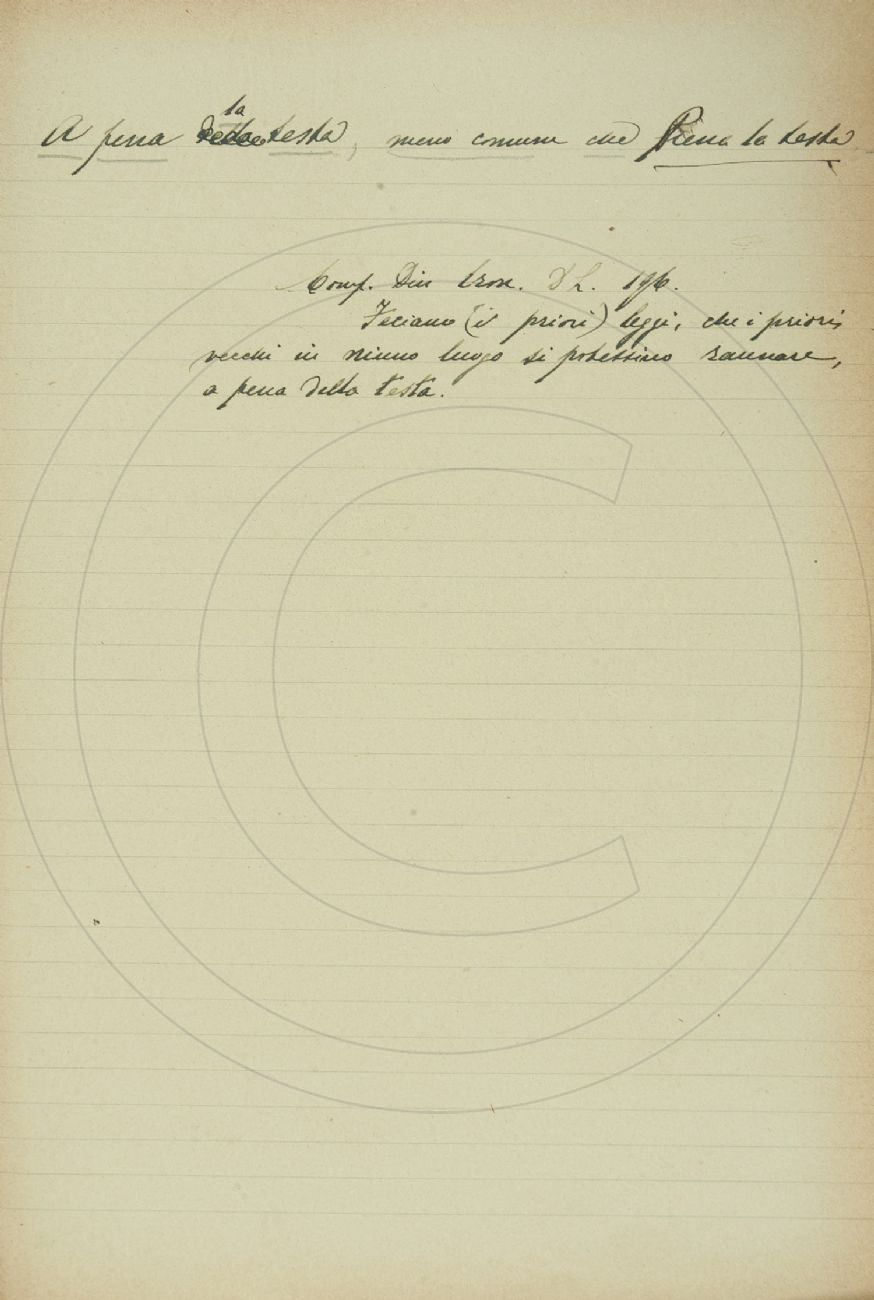 A pena la testa, meno comune che Pena la testa
Comp. Din Cron. D L. 196.
Feciano (i priori) leggi, che i priori
vecchi in niuno luogo si potessino raunare,
a pena della testa.